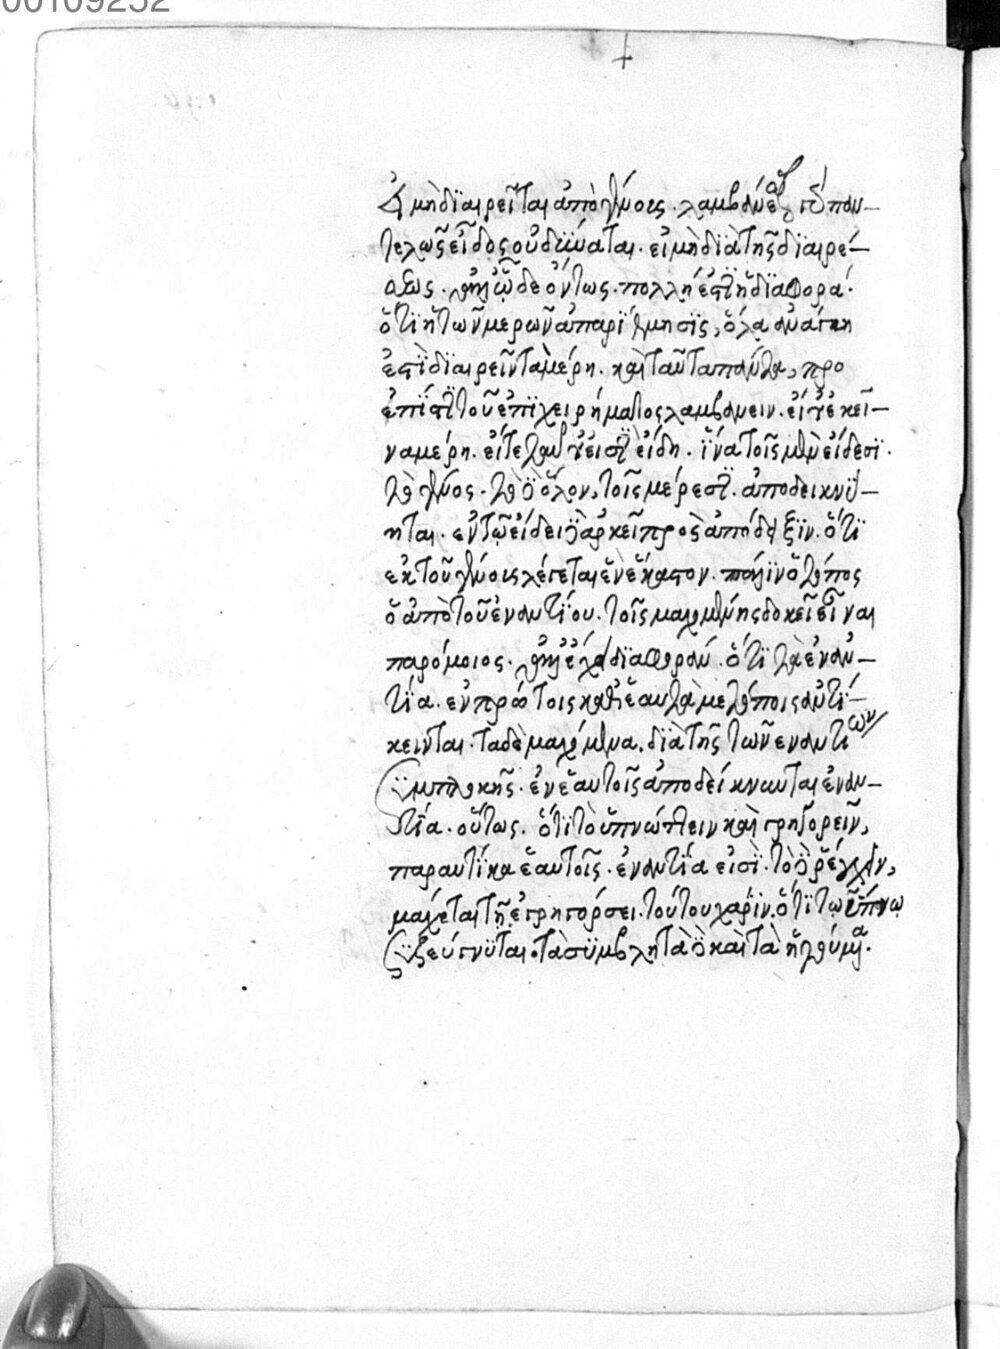 00109252
μὴ διαιρεῖται ἀπὸ γένους · λαμβάνε
τελῶς εἶδος οὐ δύναται · εἰ μὴ διὰ τῆς διαιρέ-
σεως · ὧδε ὄντως · πολλή ἐστι ἡ διαφορά ·
ὅτι ἡ τῶν μερῶν ἀπαρίθμησις, ὅλα ἀνάγκη
ἐστὶ διαιρεῖν τὰ μέρη · καὶ ταῦτα πάντα, προ
ἐπὶ τοῦ ἐπιχειρήματος λαμβάνειν · εἴτε ἐκεῖ-
να μέρη · εἴτε εἴδη · ἵνα τοῖς μὲν εἴδεσι ·
τὸ γένος · τὸ δὲ ὅλον, τοῖς μέρεσι · ἀποδεικνύ-
ηται · ἐν τῷ εἴδει δὲ ἀρκεῖ πρὸς ἀπόδειξιν · ὅτι
ἐκ τοῦ γένους λέγεται ἓν ἕκαστον · πάλιν ὁ τόπος
ὁ ἀπὸ τοῦ ἐναντίου · τοῖς μαχομένοις δοκεῖ εἶναι
παρόμοιος · διαφοράν · ὅτι τὰ ἐναν-
τία · ἐν πρώτοις καθ' ἑαυτὰ μὲν τόποις ἀντί-
κεινται · τὰ δὲ μαχόμενα, διὰ τῆς τῶν ἐναντίων
συμπλοκῆς · ἐν ἑαυτοῖς ἀποδείκνυνται ἐναν-
τία · οὕτως · ὅτι τὸ ὑπνώττειν καὶ γρηγορεῖν,
παραυτίκα ἑαυτοῖς · ἐναντία εἰσὶ · τὸ δὲ ῥέγχειν,
μάχεται τῇ ἐγρηγόρσει · τούτου χάριν · ὅτι τῷ ὕπνῳ
συζεύγνυται · τὰ σύμβλητα δὲ καὶ τὰ